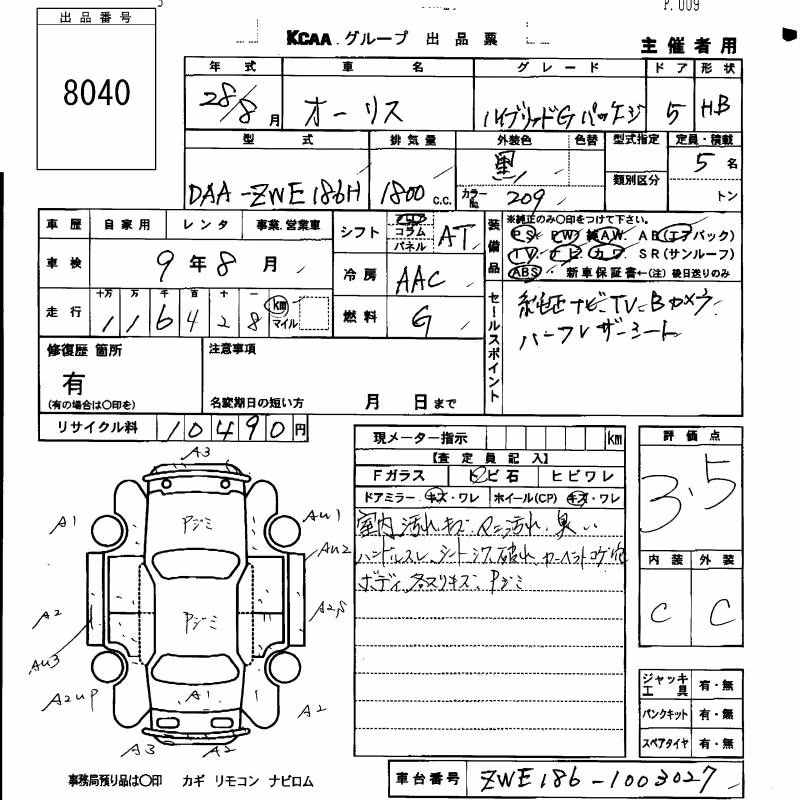 P. 009
出品番号
8040
KCAA グループ 出品票
主催者用
年式 車名 グレード ドア 形状
28/8月 オーリス ハイブリッドGパッケージ 5 HB
型式 排気量 外装色 色替 型式指定 定員・積載
DAA-ZWE186H 1800 C.C. 黒 類別区分 5名
カラーNo. 209 トン
車歴 自家用 レンタ 事業.営業車 シフト コラム パネル AT
車検 9年8月 冷房 AAC
走行 十万 万 千 百 十 一 km マイル
116428 燃料 G
装備品 ※純正のみ〇印をつけて下さい。
PS. PW. AW. AB(エアバック)
TV. ナビ. カワ. SR(サンルーフ)
ABS 新車保証書←(注)後日送りのみ
セールスポイント
純正ナビ TV Bカメラ
ハーフレザーシート
修復歴 箇所 注意事項
有
(有の場合は〇印を) 名変期日の短い方 月 日まで
リサイクル料 10490円
現メーター指示 km
【査定員記入】
Fガラス トビ石 ヒビワレ
ドアミラー キズ・ワレ ホイール(CP) キズ・ワレ
室内汚れ.キズ 汚れ.臭い
ハンドルスレ.シートシワ.破れ カーペットコゲ穴
ボディ.各ヌリキズ.Pジミ
評価点
3.5
内装 外装
C C
ジャッキ工具 有・無
パンクキット 有・無
スペアタイヤ 有・無
A3
Pジミ
A1 AU1
AU2
Pジミ
A2 A2,S
AU3
A2UP A1 A2
A3 A2
事務局預り品は〇印 カギ リモコン ナビロム
車台番号 ZWE186-1003027